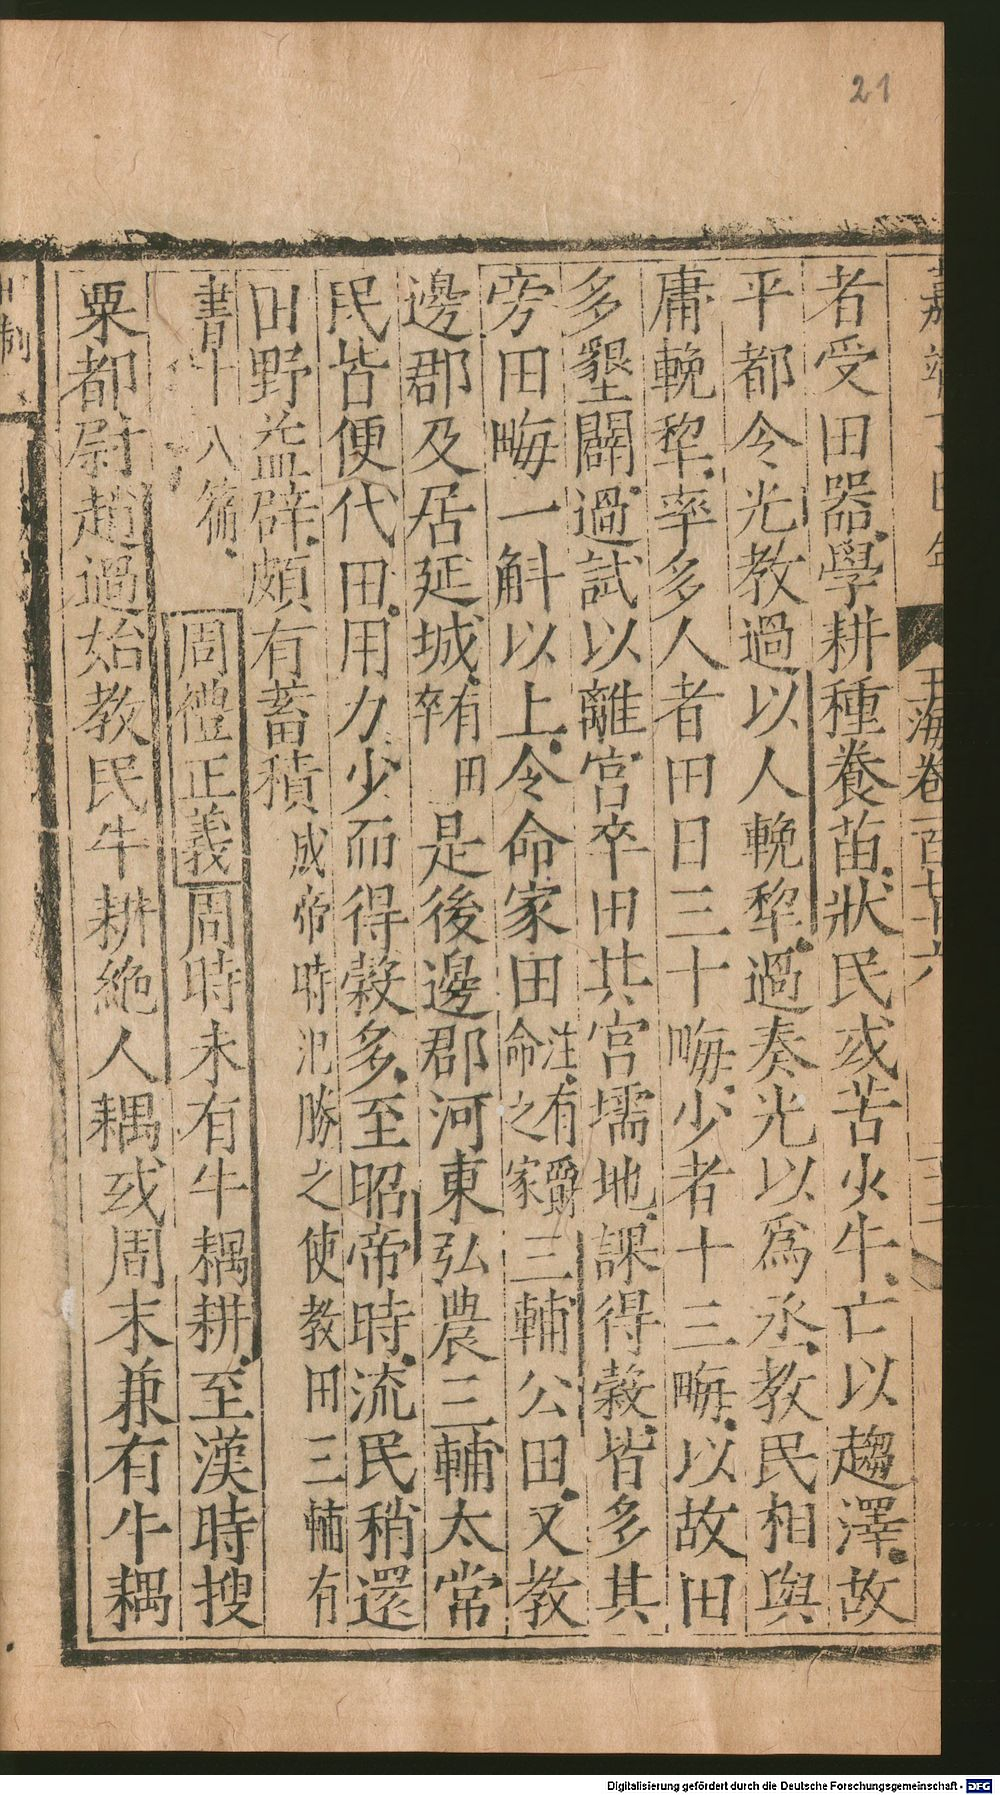 21
嘉靖
玉海卷一百七十六
者受田器學耕種養苗狀民或苦少牛亡以趨澤故
平都令光教過以人輓犂過奏光以爲丞教民相與
庸輓犂率多人者田日三十畮少者十三畮以故田
多墾闢過試以離宮卒田其宮壖地課得穀皆多其
旁田畮一斛以上令命家田注有爵命之家三輔公田又教
邊郡及居延城有田卒是後邊郡河東弘農三輔太常
民皆便代田用力少而得穀多至昭帝時流民稍還
田野益辟頗有蓄積成帝時氾勝之使教田三輔有
書十八篇周禮正義周時未有牛耦耕至漢時搜
粟都尉趙過始教民牛耕絶人耦或周末兼有牛耦
田制
Digitalisierung gefördert durch die Deutsche Forschungsgemeinschaft - DFG